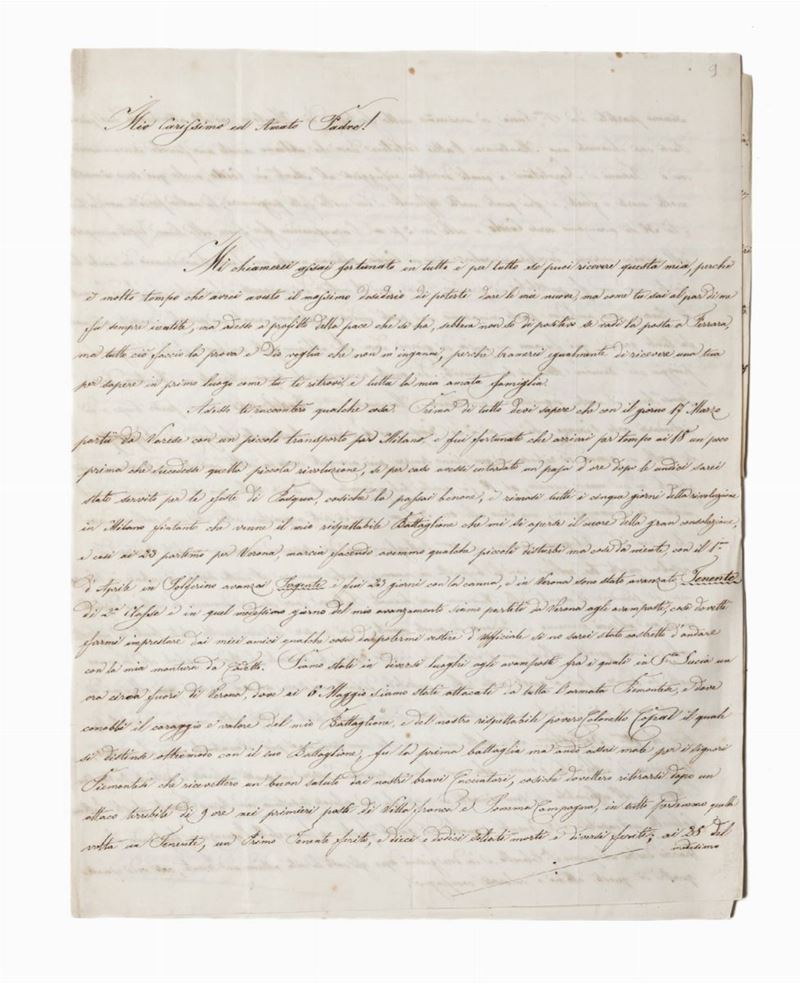 9
Mio carissimo ed Amato Padre!
Mi chiamerei assai fortunato in tutto e per tutto se puoi ricevere questa mia, perchè
è molto tempo che avrei avuto il massimo desiderio di poterti dare le mie nuove, ma come tu sai al par di me
fui sempre, ma adesso a profitto della pace che si ha, sebben non sò di positivo se vadi la posta a Ferrara,
ma tutto ciò faccio la prova e Dio voglia che non m'inganni, perchè bramerei egualmente di ricevere una tua
per sapere in primo luogo come tu ti ritrovi e tutta la mia amata famiglia.
Adesso ti racconterò qualche cosa. Prima di tutto devi sapere che con il giorno 17 Marzo
partii da Varese con un piccolo transporto per Milano, e fui fortunato che arrivai per tempo ai 18 un poco
prima che succedesse quella piccola rivoluzione, se per caso avessi intardato un pajo d'ore dopo le undici sarei
stato servito per le feste di Pasqua, cosichè la passai benone, e rimasi tutti i cinque giorni della rivoluzione
in Milano fintanto che venne il mio rispettabile Battaglione che mi si aperse il cuore della gran consolazione,
e così ai 23 partimo per Verona, marcia facendo avemmo qualche piccoli disturbi ma cosa da niente, con il 1mo
d'Aprile in Solferino avanzai Sergente e fui 23 giorni con la canna, e in Verona sono stato avanzato Tenente
di 2da Classe e in quel medesimo giorno del mio avanzamento siamo partiti da Verona agli avamposti, così dovetti
farmi imprestare dai miei amici qualche cosa da potermi vestire d'Ufficiale se no sarei stato costretto d'andare
con la mia montura da Cadetto. Siamo stati in diversi luoghi agli avamposti fra i quali in Sta Lucia un
ora circa fuori di Verona, dove ai 6 Maggio siamo stati attacati da tutta l'armata Piemontese, e dove
conobbi il coraggio e valore del mio Battaglione, e del nostro rispettabile povero Colonello Copal il quale
si distinse oltremodo con il suo Battaglione, fu la prima battaglia ma andò assai male per i signori
Piemontesi che ricevettero un buon saluto dai nostri bravi Cacciatori, cosichè dovettero ritirarsi dopo un
attaco terribile di 9 ore nei primieri posti di Villafranca e Somma Campagna, in tutto perdemmo quella
volta un Tenente, un Primo Tenente ferito, e dieci e dodici soldati morti e diversi feriti; ai 28 del
medesimo